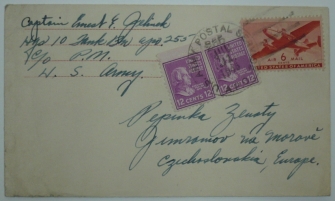 Captain Ernest E.
Hqs 10 Tank Bn APO 250
c/o P.M.
U. S. Army
POSTAL
12 CENTS 12
12 CENTS 12
AIR 6 MAIL
UNITED STATES OF AMERICA
Pepinka
na Moravě
Czechoslovakia, Europe.